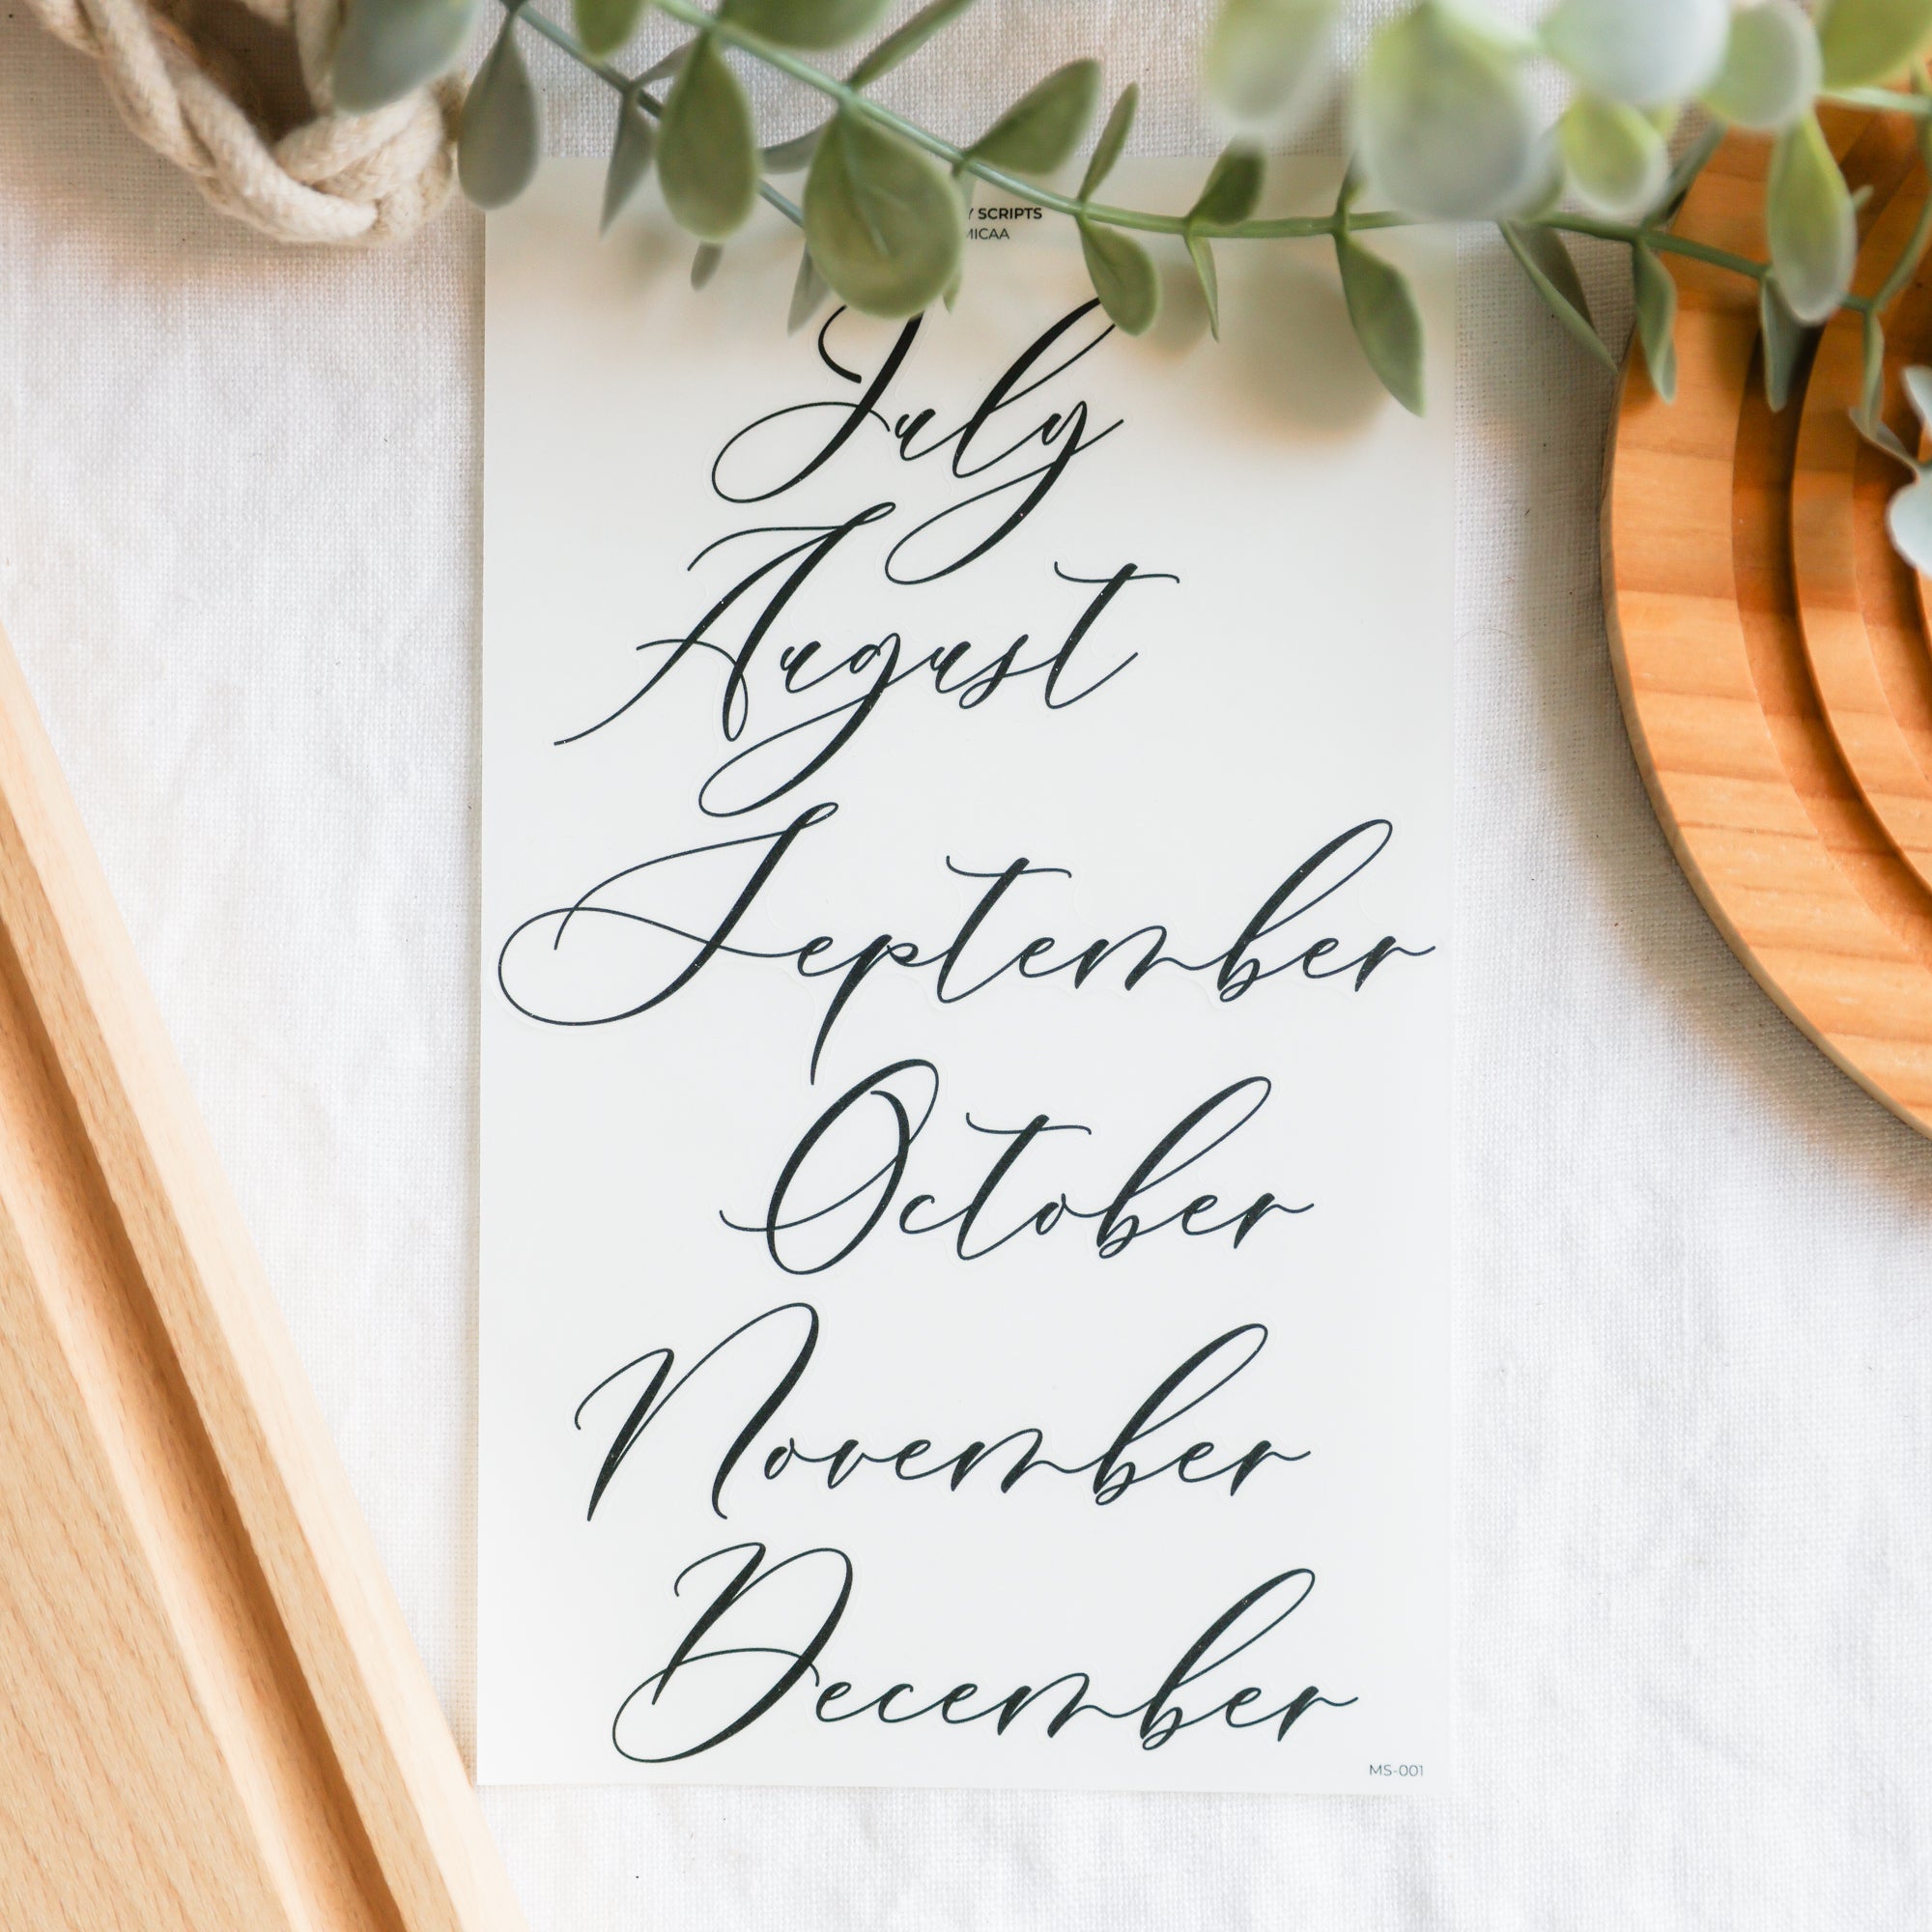 SCRIPTS
July
August
September
October
November
December
MS-001